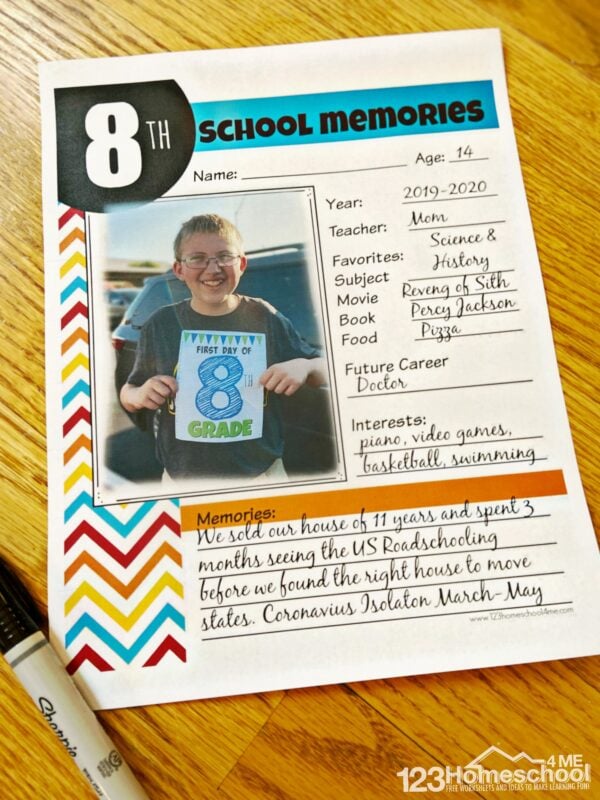 8TH SCHOOL MEMORIES
Name: Age: 14
Year: 2019-2020
Teacher: Mom
Favorites:
Subject Science & History
Movie Reveng of Sith
Book Percy Jackson
Food Pizza
Future Career
Doctor
Interests:
piano, video games,
basketball, swimming
FIRST DAY OF
8TH
GRADE
Memories:
We sold our house of 11 years and spent 3
months seeing the US Roadschooling
before we found the right house to move
states. Coronavius Isolaton March-May
www.123homeschool4me.com
Sharpie
123Homeschool 4 ME
FREE WORKSHEETS AND IDEAS TO MAKE LEARNING FUN!